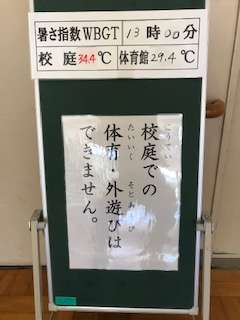 暑さ指数WBGT 13時00分
校庭34.4℃ 体育館29.4℃
こうてい
校庭での
たいいく そとあそ
体育・外遊びは
できません。